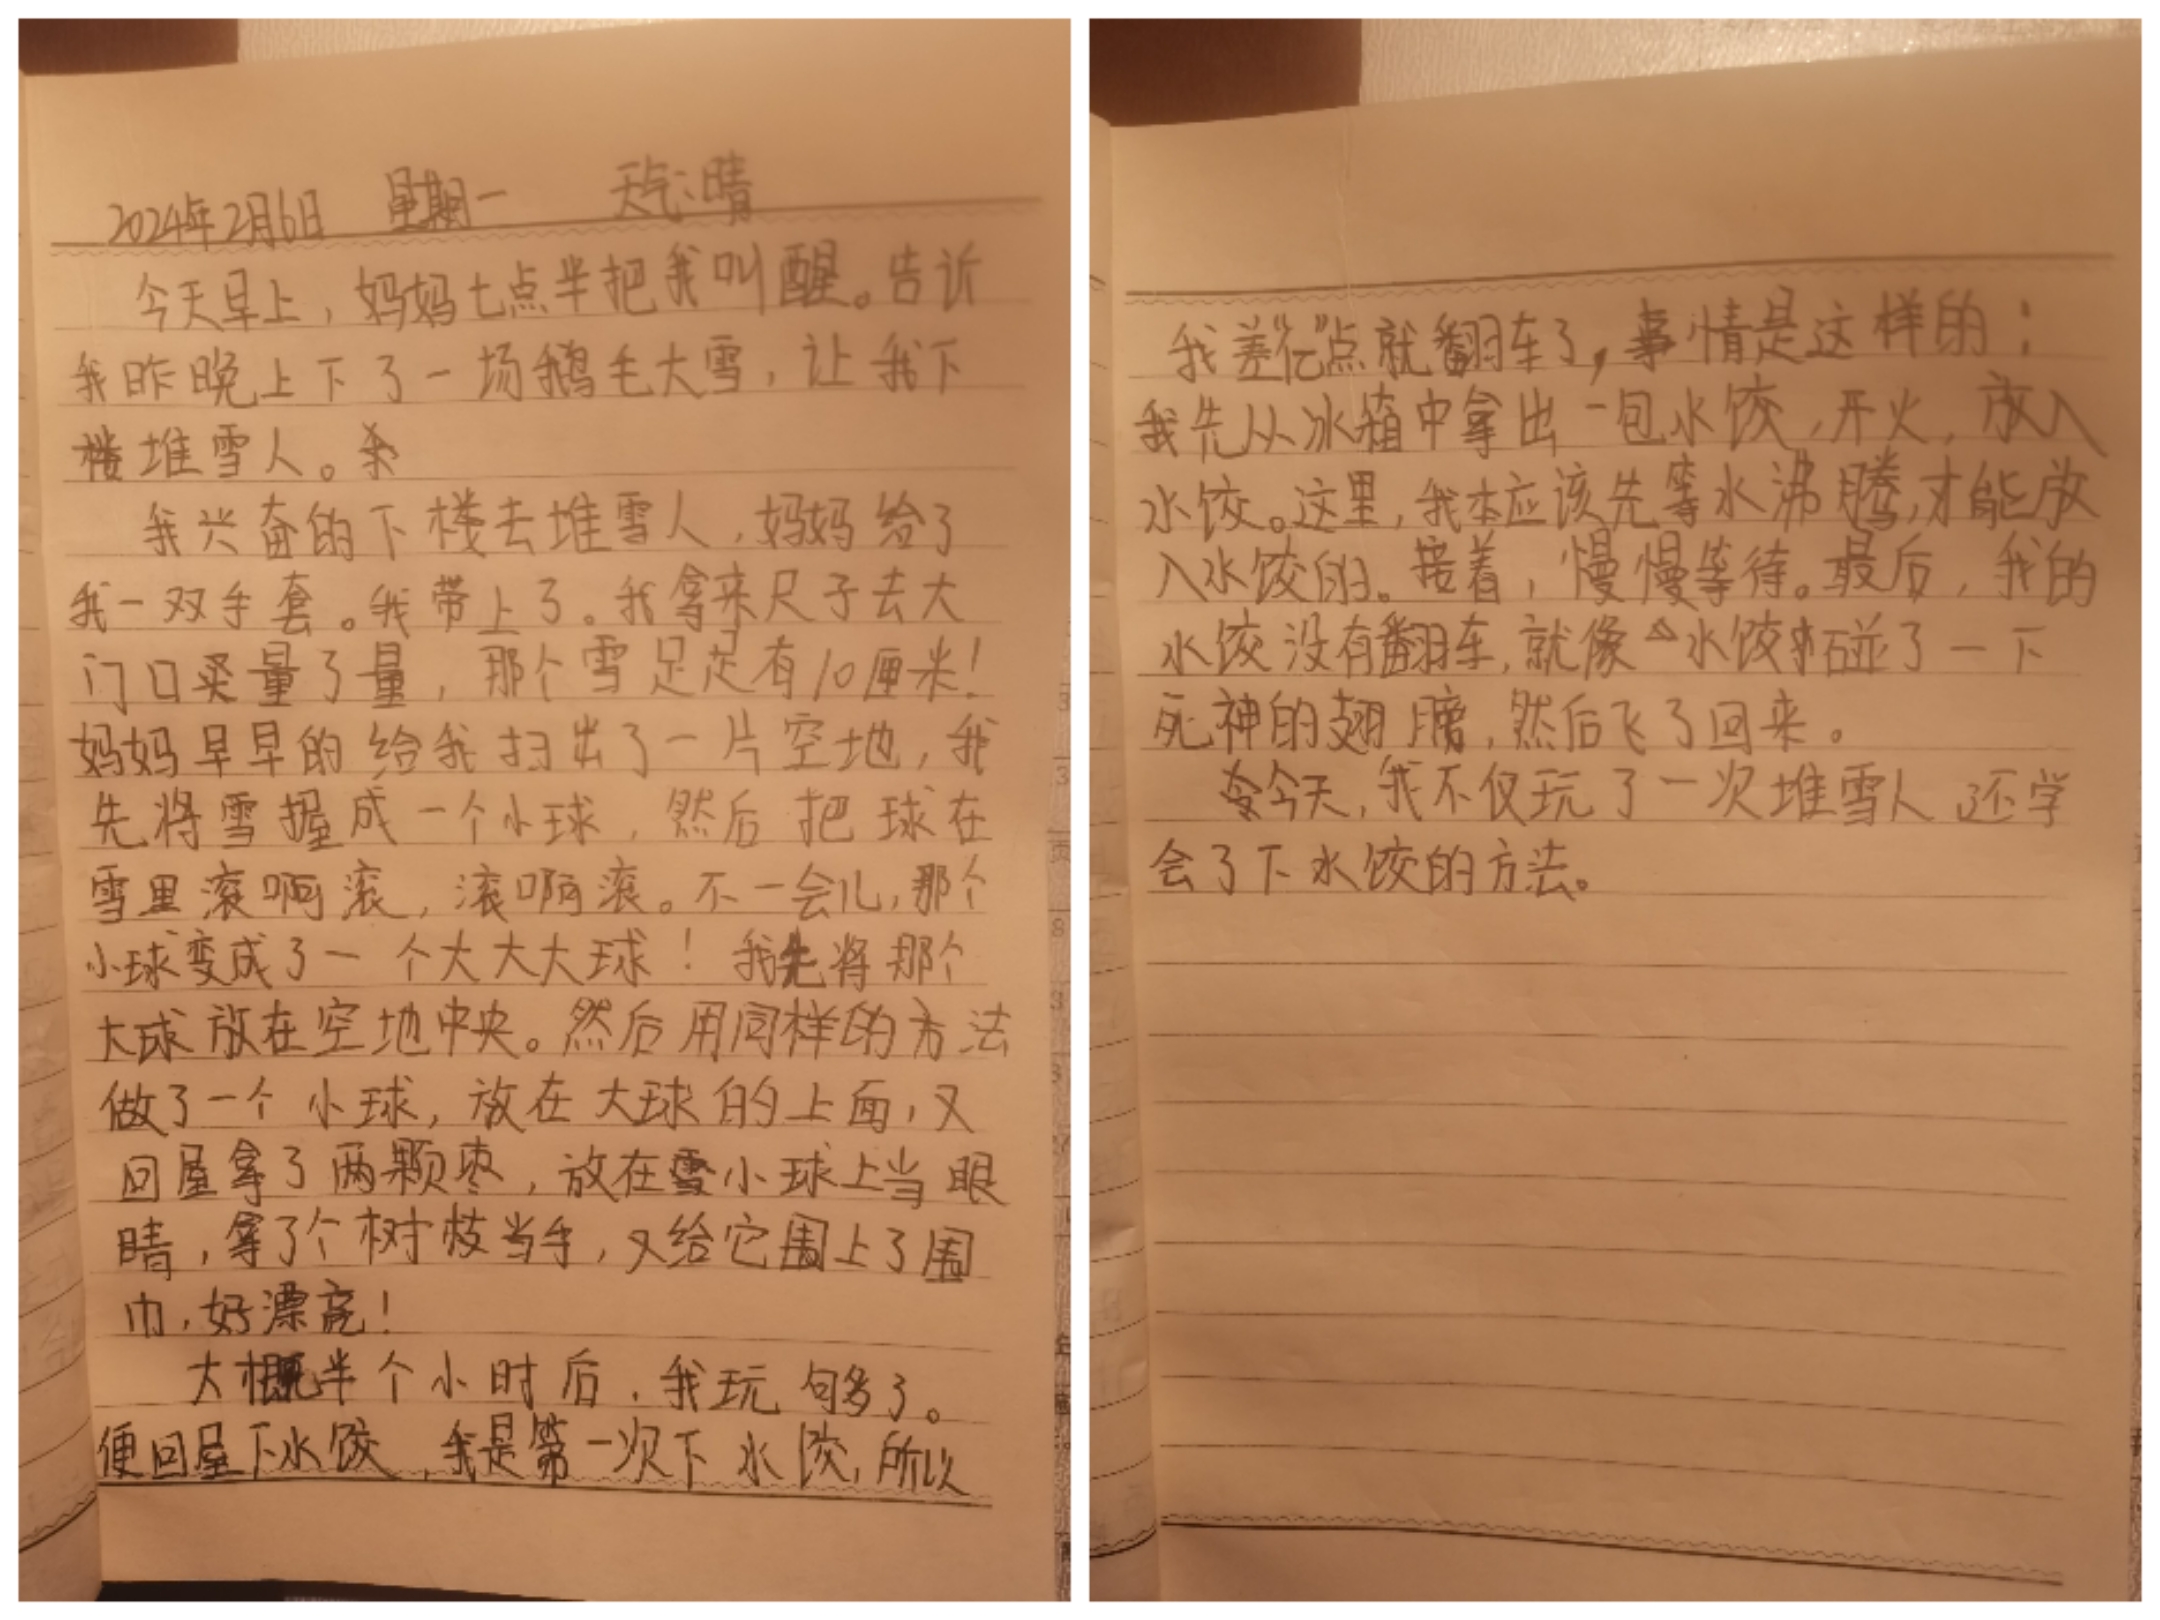 2024年2月6日 星期一 天气:晴
今天早上，妈妈七点半把我叫醒。告诉
我昨晚上下了一场鹅毛大雪，让我下
楼堆雪人。
我兴奋的下楼去堆雪人，妈妈给了
我一双手套。我带上了。我拿来尺子去大
门口量了量，那个雪足足有10厘米！
妈妈早早的给我扫出了一片空地，我
先将雪握成一个小球，然后把球在
雪里滚啊滚，滚啊滚。不一会儿，那个
小球变成了一个大大大球！我先将那个
大球放在空地中央。然后用同样的方法
做了一个小球，放在大球的上面，又
回屋拿了两颗枣，放在雪小球上当眼
睛，拿了个树枝当手，又给它围上了围
巾，好漂亮！
大概半个小时后，我玩够了。
便回屋下水饺，我是第一次下水饺，所以
我差“亿”点就翻车了，事情是这样的：
我先从冰箱中拿出一包水饺，开火，放入
水饺。这里，我本应该先等水沸腾，才能放
入水饺的。接着，慢慢等待。最后，我的
水饺没有翻车，就像水饺碰了一下
死神的翅膀，然后飞了回来。
今天，我不仅玩了一次堆雪人还学
会了下水饺的方法。